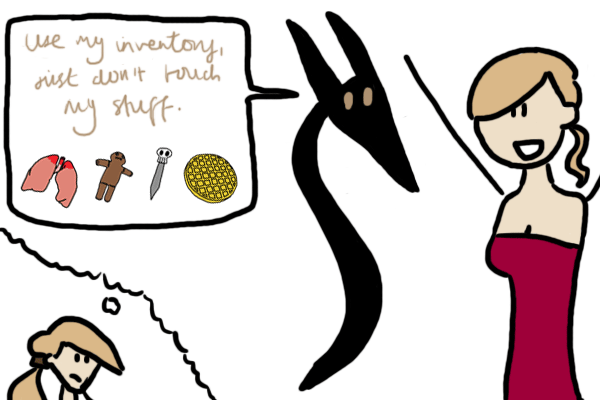 Use my inventory,
just don't touch
my stuff.